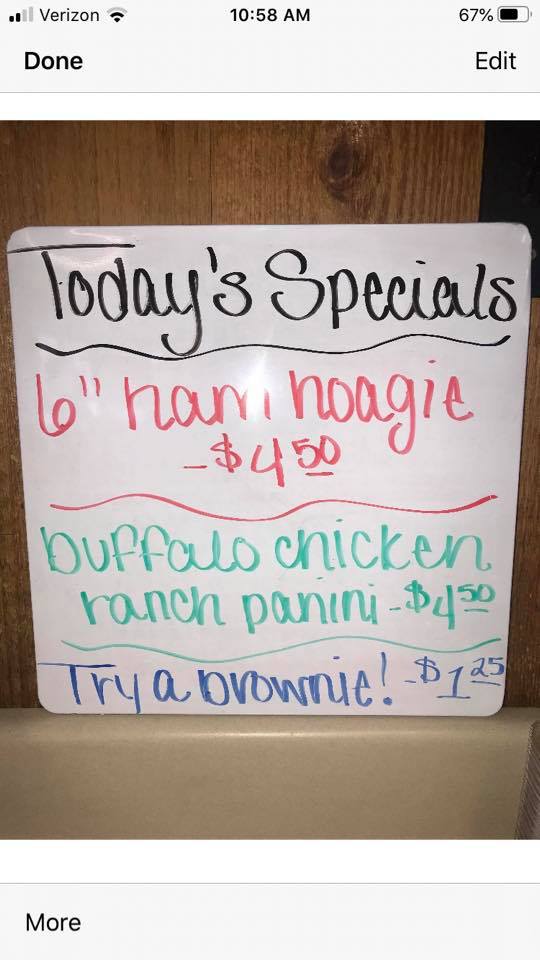 Verizon 10:58 AM 67%
Done Edit
Today's Specials
6" ham hoagie
-$4 50
buffalo chicken
ranch panini -$4 50
Try a brownie! -$1 25
More